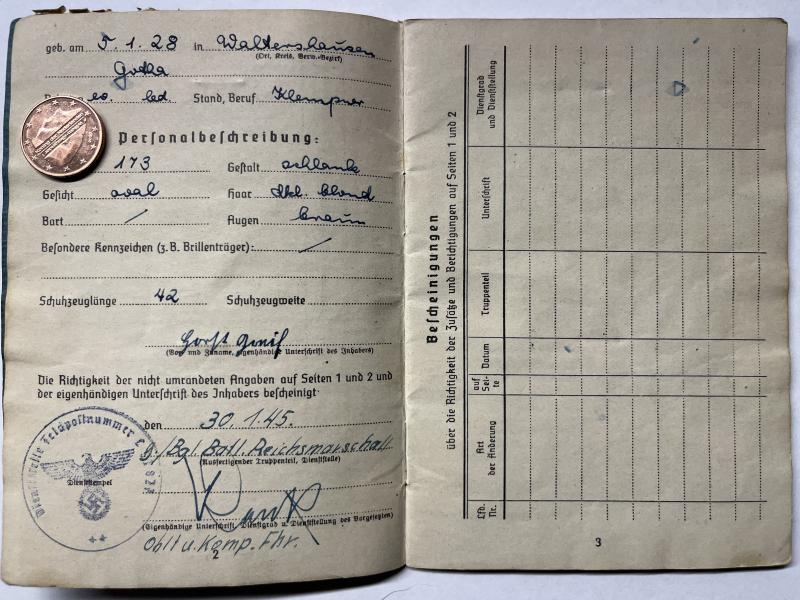 geb. am 5.1.28 in Waltershausen
(Ort, Kreis, Verw.-Bezirk)
Gotha
ev. led. Stand, Beruf Klempner
Personalbeschreibung:
173 Gestalt schlank
Gesicht oval Haar dkl. blond
Bart / Augen braun
Besondere Kennzeichen (z. B. Brillenträger): /
Schuhzeuglänge 42 Schuhzeugweite
Horst
(Vor- und Zuname, eigenhändige Unterschrift des Inhabers)
Die Richtigkeit der nicht umrandeten Angaben auf Seiten 1 und 2 und
der eigenhändigen Unterschrift des Inhabers bescheinigt
den 30.1.45.
Btl. Reichsmarschall
(Ausfertigender Truppenteil, Dienststelle)
Dienststelle Feldpostnummer L
Dienststempel
(Eigenhändige Unterschrift, Dienstgrad u. Dienststellung des Vorgesetzten)
Oblt u. Komp. Fhr.
2
Bescheinigungen
über die Richtigkeit der Zusätze und Berichtigungen auf Seiten 1 und 2
Lfd. Nr.
Art der Änderung
auf Sei- te
Datum
Truppenteil
Unterschrift
Dienstgrad und Dienststellung
3